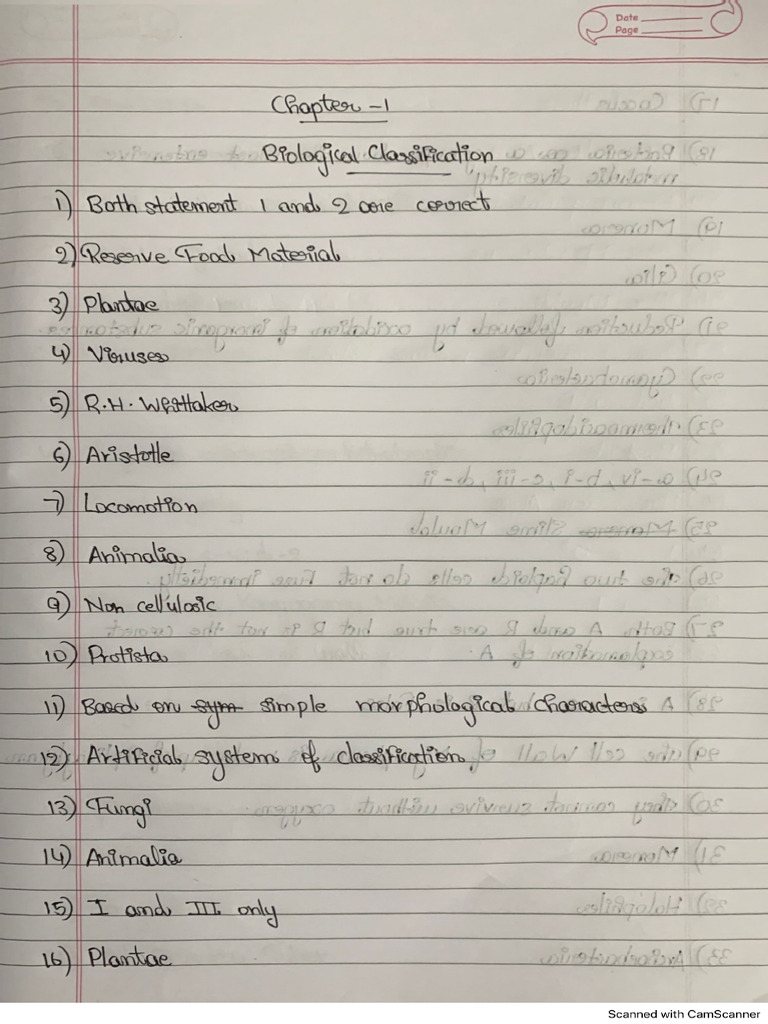 Date
Page
Chapter -1
Biological Classification
1) Both statement 1 and 2 are correct
2) Reserve Food Material
3) Plantae
4) Viruses
5) R.H. Whittaker
6) Aristotle
7) Locomotion
8) Animalia
9) Non cellulosic
10) Protista
11) Based on sym simple morphological characters
12) Artificial system of classification
13) Fungi
14) Animalia
15) I and III only
16) Plantae
Scanned with CamScanner